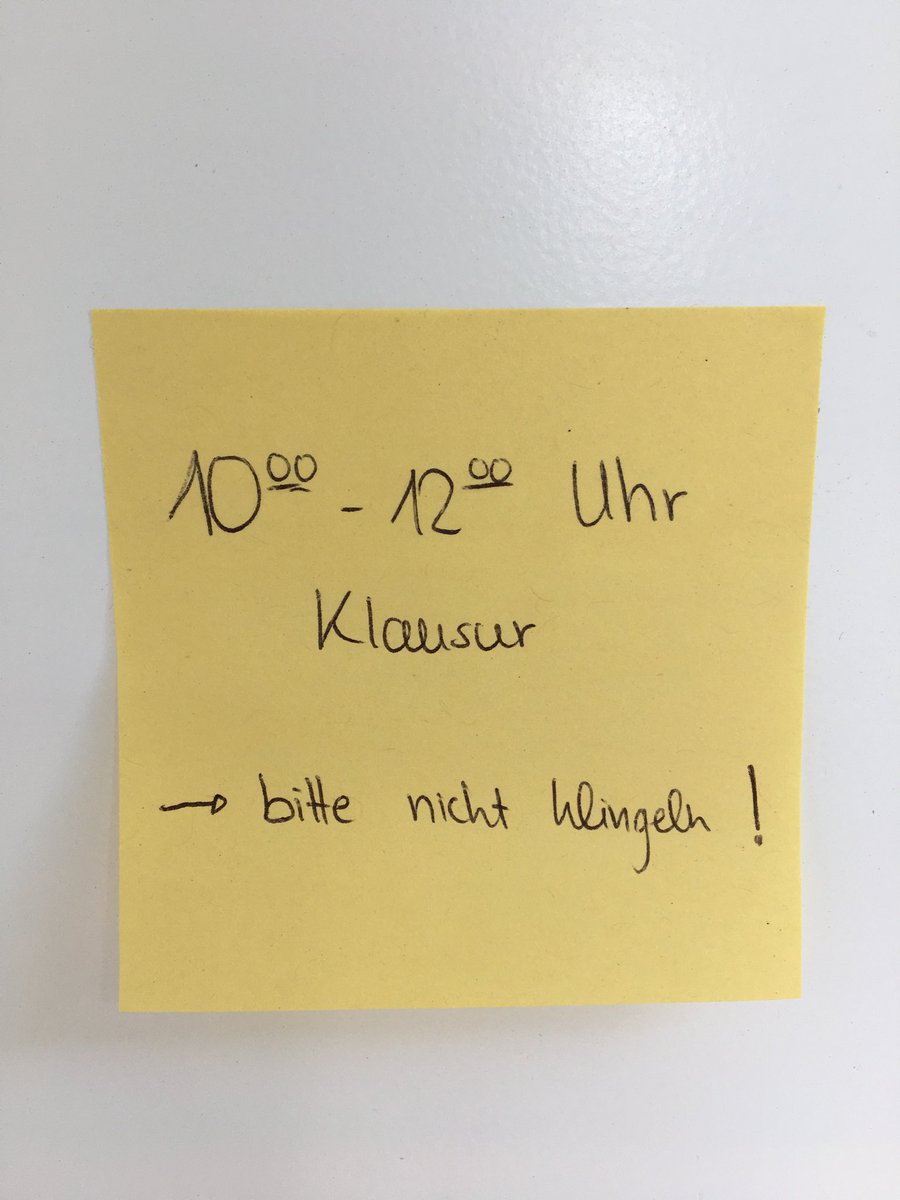 10⁰⁰ - 12⁰⁰ Uhr
Klausur
→ bitte nicht klingeln !